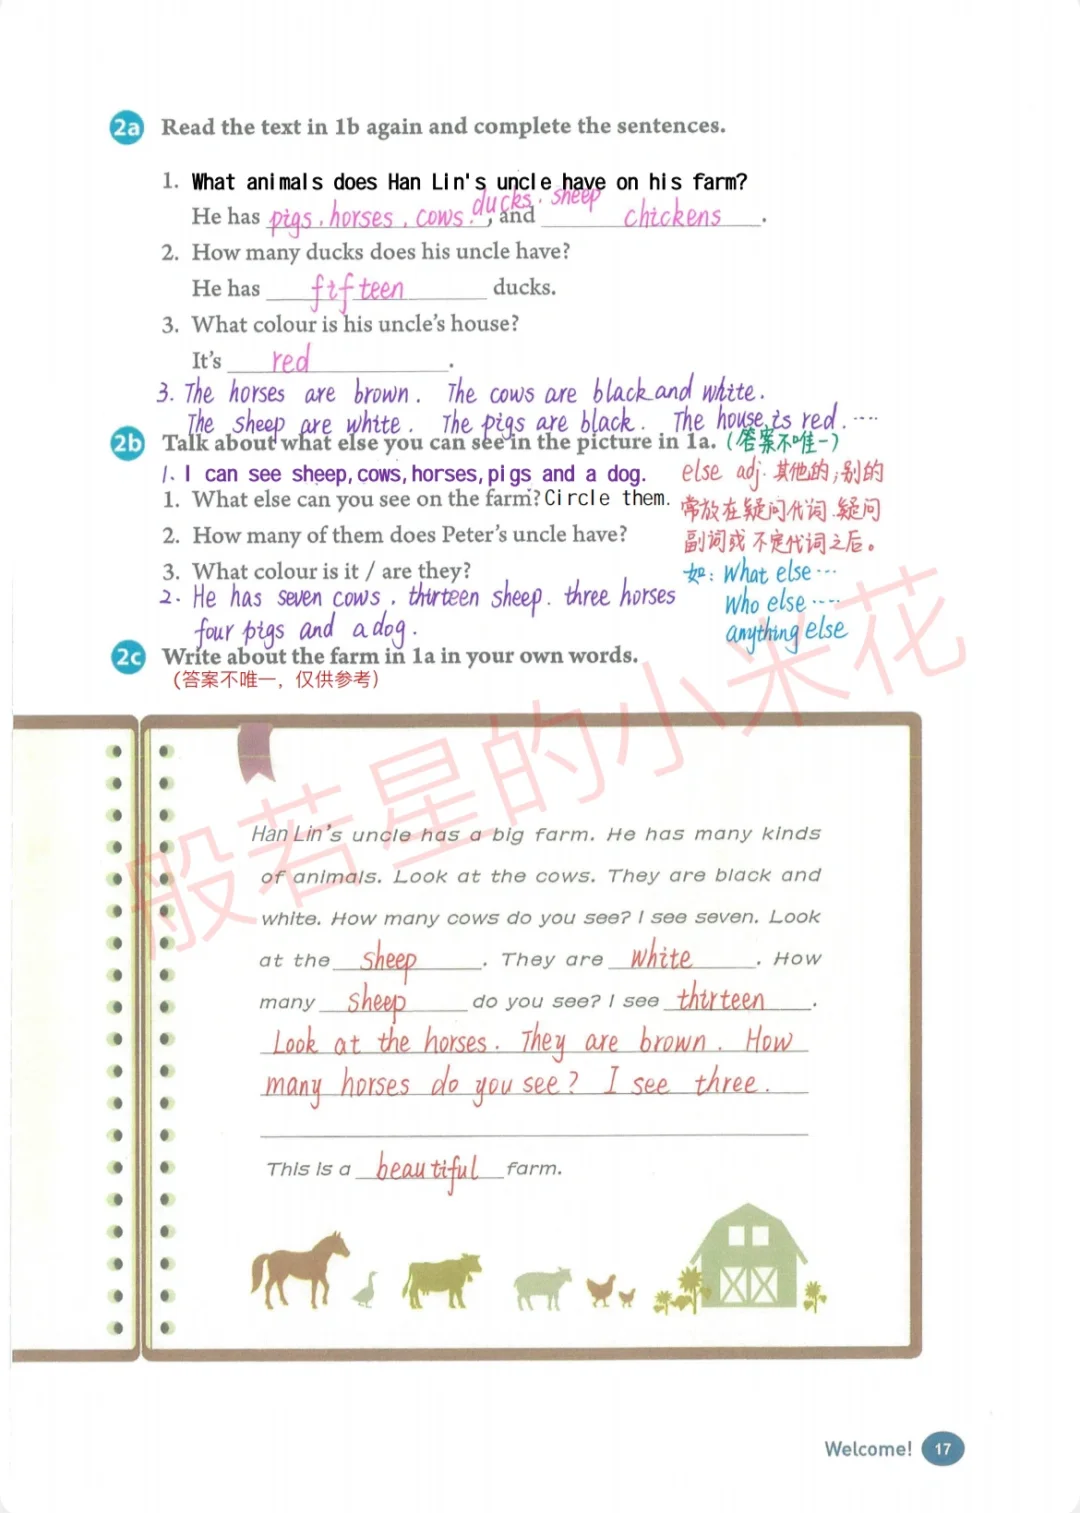 2a Read the text in 1b again and complete the sentences.
1. What animals does Han Lin's uncle have on his farm?
ducks. sheep
He has pigs. horses. cows. , and chickens .
2. How many ducks does his uncle have?
He has fifteen ducks.
3. What colour is his uncle's house?
It's red .
3. The horses are brown. The cows are black and white.
The sheep are white. The pigs are black. The house is red. ....
2b Talk about what else you can see in the picture in 1a. (答案不唯一)
1. I can see sheep,cows,horses,pigs and a dog. else adj. 其他的;别的
1. What else can you see on the farm? Circle them. 常放在疑问代词.疑问
2. How many of them does Peter's uncle have? 副词或不定代词之后。
3. What colour is it / are they? 如: What else ...
2. He has seven cows. thirteen sheep. three horses Who else ....
four pigs and a dog. anything else
2c Write about the farm in 1a in your own words.
(答案不唯一, 仅供参考)
般若星的小米花
Han Lin's uncle has a big farm. He has many kinds
of animals. Look at the cows. They are black and
white. How many cows do you see? I see seven. Look
at the sheep . They are white . How
many sheep do you see? I see thirteen .
Look at the horses. They are brown. How
many horses do you see? I see three.
This is a beautiful farm.
Welcome! 17